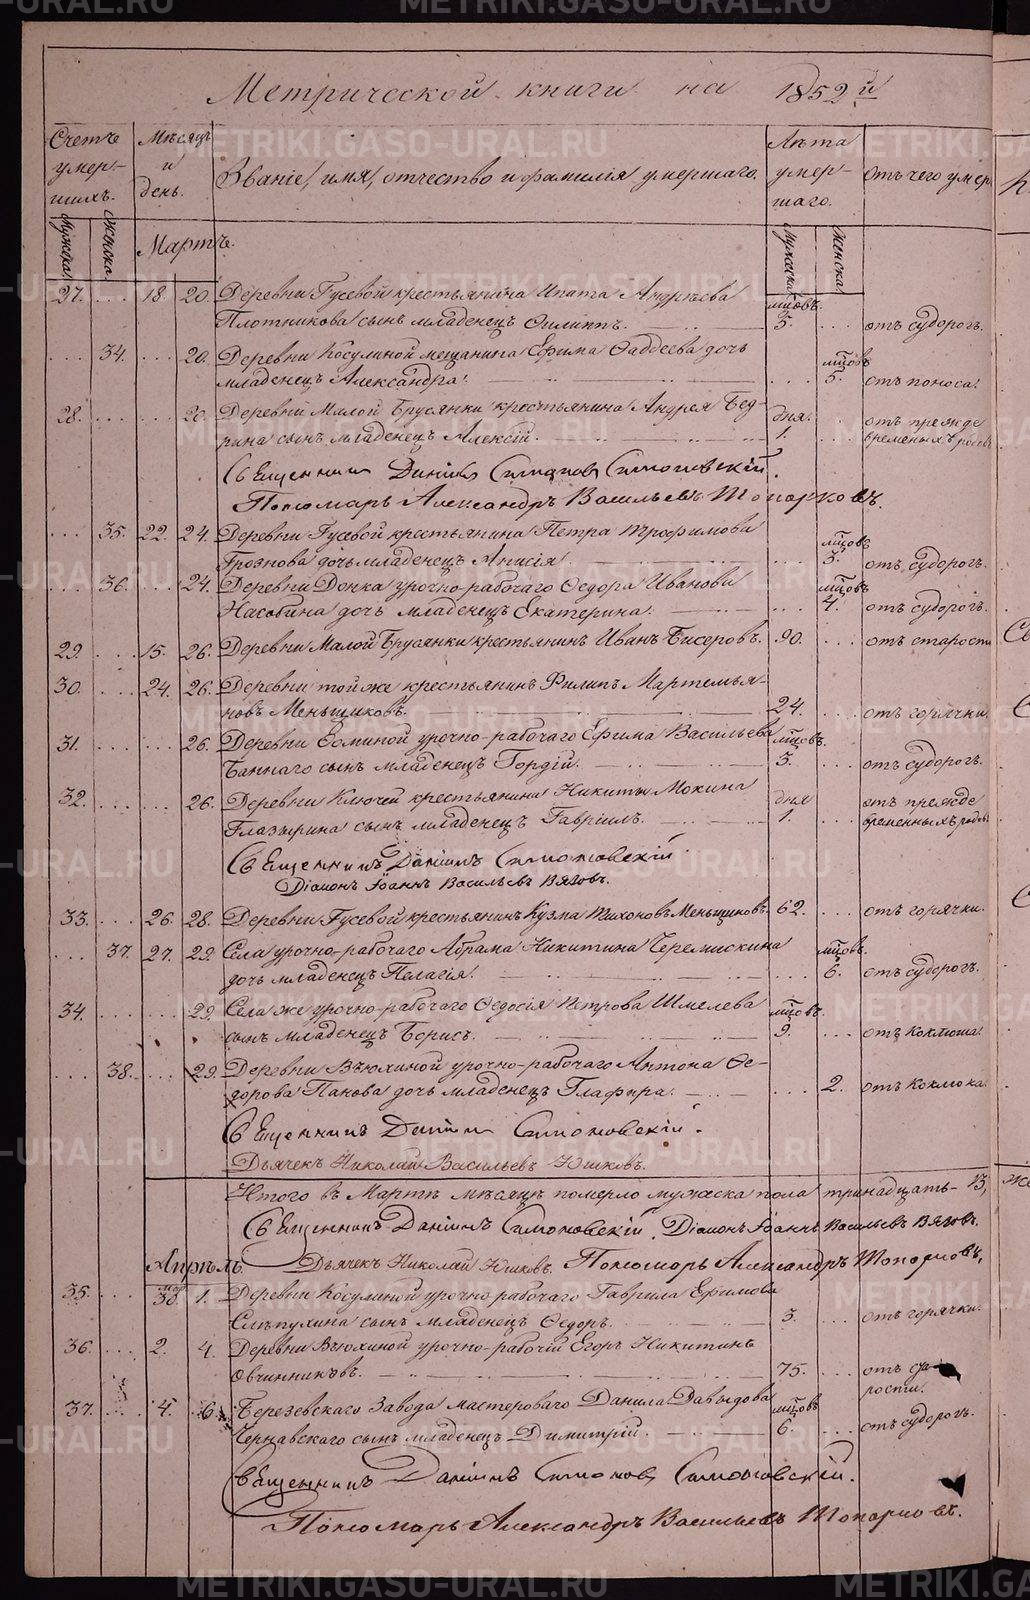 Метрической книги на 1852 й
Счетъ умер-шихъ.
Мѣсяцъ и день.
Званіе, имя, отчество и фамилія умершаго.
Лѣта умер-шаго.
Отъ чего умер
Мужеска
Женска
Мартъ.
Мужеска
Женска
27. .... 18. 20. Деревни Гусевой крестьянина Ипата Андрѣева
Плотникова сынъ младенецъ Филиппъ. мцовъ 5. ... отъ судорогъ.
... 34. ... 20. Деревни Косулиной мещанина Ефима Фаддеева дочь
младенецъ Александра. ... мцовъ 5. отъ поноса.
28. ... ... 20. Деревни Малой Брусянки крестьянина Андрея Бед-
рина сынъ младенецъ Алексій. дня. 1. ... отъ прежде временныхъ родовъ
Священникъ Даніилъ Симоновъ Симоновскій.
Пономарь Александръ Васильевъ Топорковъ.
... 35. 22. 24. Деревни Гусевой крестьянина Петра Трофимова
Грознова дочь младенецъ Анисія. ... мцовъ 3. отъ судорогъ.
... 36. ... 24. Деревни Донка урочно-рабочаго Федора Иванова
дочь младенецъ Екатерина. ... мцовъ 4. отъ судорогъ.
29. ... 15. 26. Деревни Малой Брусянки крестьянинъ Иванъ Бисеровъ. 90. ... отъ старости
30. ... 24. 26. Деревни той же крестьянинъ Филипъ Мартемья-
новъ Меньщиковъ. 24. ... отъ горячки.
31. ... ... 26. Деревни Фоминой урочно-рабочаго Ефима Васильева
Баннаго сынъ младенецъ Гордій. мцовъ. 3. ... отъ судорогъ.
32. ... ... 26. Деревни Ключей крестьянина Никиты Мокина
Глазырина сынъ младенецъ Гавріилъ. дня 1. ... отъ прежде временныхъ родовъ
Священникъ Даніилъ Симоновскій
Діаконъ Іоаннъ Васильевъ Вяговъ.
33. ... 26. 28. Деревни Гусевой крестьянинъ Кузма Тихоновъ Меньщиковъ. 62. ... отъ горячки.
... 37. 27. 29. Села урочно-рабочаго Абрама Никитина Черемискина
дочь младенецъ Пелагія. ... мцовъ. 6. отъ судорогъ.
34. ... ... 29. Села же урочно-рабочаго Федосія Петрова Шмелева
сынъ младенецъ Борисъ. мцовъ 9. ... отъ коклюша.
... 38. ... 29. Деревни Вѣюхиной урочно-рабочаго Антона Фе-
дорова Панова дочь младенецъ Глафира. ... 2. отъ
Священникъ Даніилъ Симоновскій.
Дьячекъ Николай Васильевъ Юшковъ.
Итого въ Мартѣ мѣсяцѣ померло мужеска пола тринадцать - 13,
Священникъ Даніилъ Симоновскій. Діаконъ Іоаннъ Васильевъ Вяговъ.
Апрѣль. Дьячекъ Николай Юшковъ. Пономарь Александръ Топорковъ,
35. ... Мар. 30. 1. Деревни Косулиной урочно-рабочаго Гаврила Ефимова
Слѣпухина сынъ младенецъ Федоръ. 3. ... отъ горячки.
36. ... 2. 4. Деревни Вѣюхиной урочно-рабочій Егоръ Никитинъ
Овчинниковъ. 75. ... отъ старости.
37. ... 4. 6. Березевскаго Завода мастероваго Данила Давыдова
Чернавскаго сынъ младенецъ Димитрій. мцовъ 6. ... отъ судорогъ.
Священникъ Даніилъ Симоновъ Симоновскій.
Пономарь Александръ Васильевъ Топорковъ.
METRIKI.GASO-URAL.RU